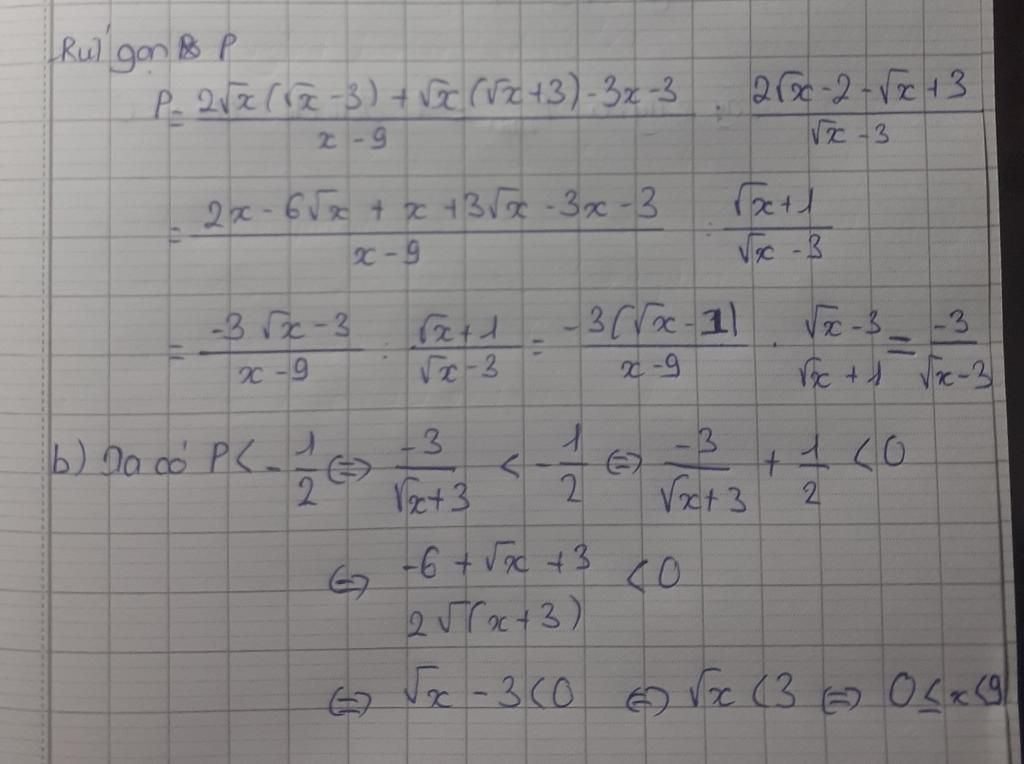 Rút gọn P
P = (2√x(√x - 3) + √x(√x + 3) - 3x - 3)/(x - 9) : (2√x - 2 - √x + 3)/(√x - 3)
= (2x - 6√x + x + 3√x - 3x - 3)/(x - 9) : (√x + 1)/(√x - 3)
= (-3√x - 3)/(x - 9) : (√x + 1)/(√x - 3) = (-3(√x - 1))/(x - 9) . (√x - 3)/(√x + 1) = (-3)/(√x - 3)
b) Ta có P < -1/2 ⇔ (-3)/(√x + 3) < -1/2 ⇔ (-3)/(√x + 3) + 1/2 < 0
⇔ (-6 + √x + 3)/(2√(x + 3)) < 0
⇔ √x - 3 < 0 ⇔ √x < 3 ⇔ 0 ≤ x < 9